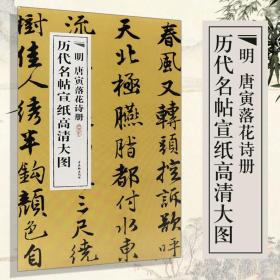 春風又轉頭控訴
極臙脂都付水東
三尺繞
樹佳人繡半鈎顏色自
明 唐寅落花诗册
历代名帖宣纸高清大图
明 唐寅落花诗册
历代名帖宣纸高清大图